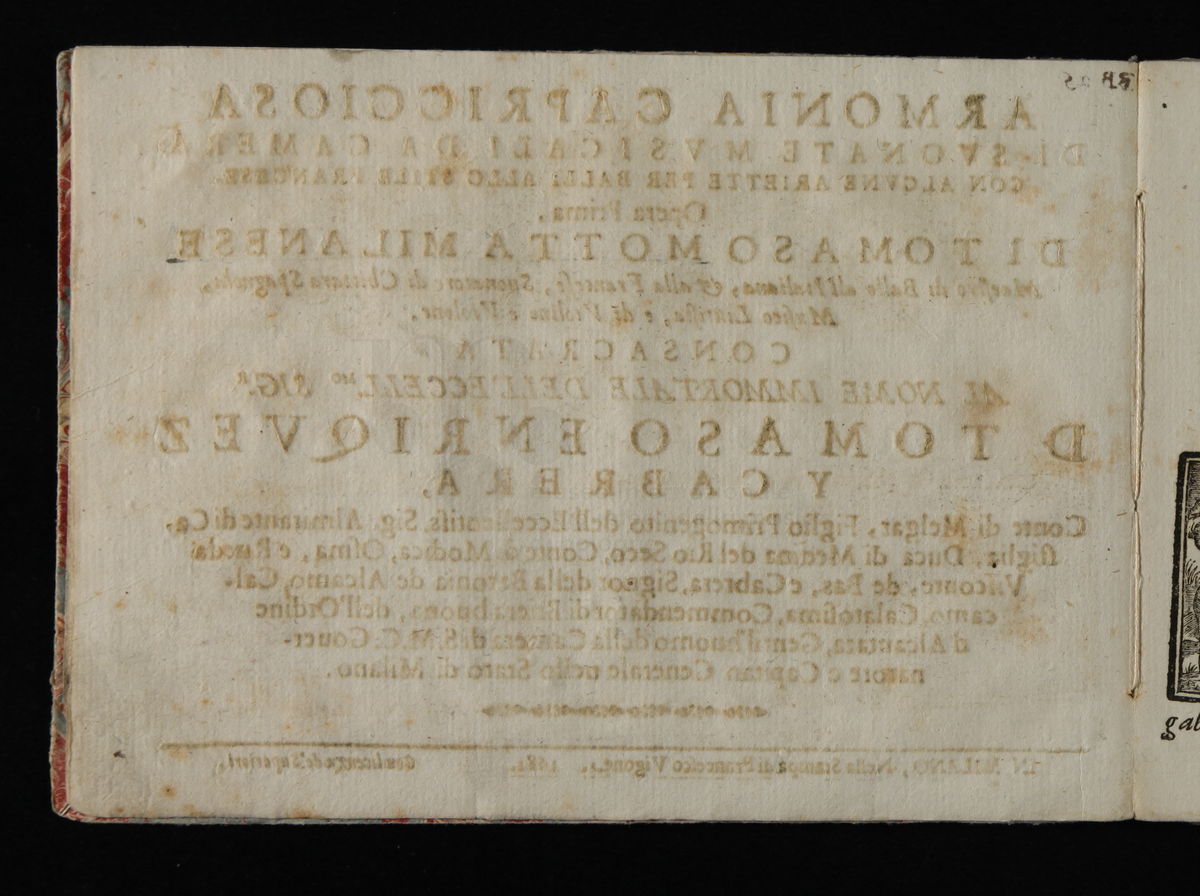 ARMONIA CAPRICCIOSA
DI SVONATE MVSICALI DA CAMERA
CON ALCVNE ARIETTE PER BALLI ALLO STILE FRANCESE.
Opera Prima,
DI TOMASO MOTTA MILANESE
Maestro di Ballo all'Italiana, & alla Francese, Suonatore di Chitarra Spagnola,
Musico Leutista, e di Violino e Violone,
CONSACRATA
AL NOME IMMORTALE DELL'ECCELL.MO SIG.R
D TOMASO ENRIQVEZ
Y CABRERA,
Conte di Melgar, Figlio Primogenito dell'Eccellentiss. Sig. Almirante di Ca,
stiglia, Duca di Medina del Rio Seco, Conte di Modica, Osma, e Rueda
Visconte, de Bas, e Cabrera, Signor della Baronia de Alcamo, Cal-
camo, Calatafima, Commendator di buona, dell'Ordine
d'Alcantara, Gentil'huomo della Camera di S. M. C. Gouer-
natore e Capitan Generale nello Stato di Milano.
IN MILANO, Nella Stampa di Francesco Vigone,. 1681. Con licenza de' Superiori,
gal